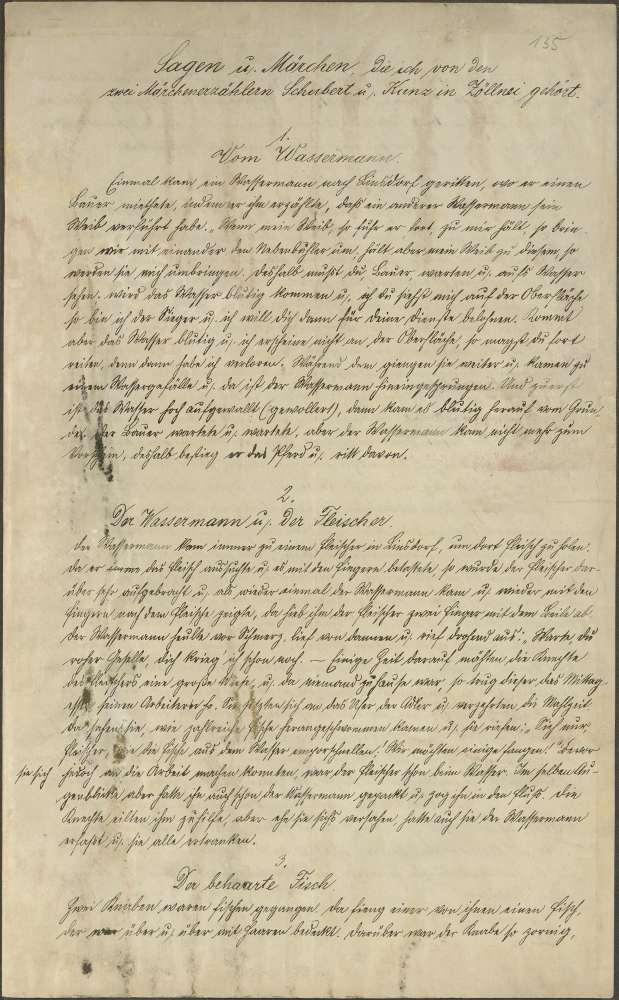 135
Sagen u. Märchen, die ich von den
zwei Märchenerzählern Schubert u. Kunz in Zöllnei gehört.
1.
Vom Wassermann.
Einmal kam ein Wassermann nach Linsdorf geritten, wo er einen
Bauer miethete, indem er ihm erzählte, daß ein anderer Wassermann sein
Weib verführt habe. „Wenn mein Weib, so fuhr er fort, zu mir hält, so brin-
gen wir mit einander den Nebenbuhler um, hält aber mein Weib zu diesem, so
werden sie mich umbringen. Deshalb mußt du, Bauer, warten u. aufs Wasser
sehen. Wird das Wasser blutig kommen u. du siehst mich auf der Oberfläche
so bin ich der Sieger u. ich will dich dann für deine Dienste belohnen. Kommt
aber das Wasser blutig u. ich erscheine nicht an der Oberfläche, so magst du fort
reiten, denn dann habe ich verloren. Während dem giengen sie weiter u. kamen zu
einem Wassergefälle u. da ist der Wassermann hineingesprungen. Und zuerst
ist das Wasser hoch aufgewallt (gewollert), dann kam es blutig herauf vom Grun
de. Der Bauer wartete u. wartete, aber der Wassermann kam nicht mehr zum
Vorschein, deshalb bestieg er das Pferd u. ritt davon.
2.
Der Wassermann u. der Fleischer.
Der Wassermann kam immer zu einem Fleischer in Linsdorf, um dort Fleisch zu holen.
Da er immer das Fleisch aussuchte u. es mit den Fingern betastete so wurde der Fleischer dar-
über sehr aufgebracht u. als wieder einmal der Wassermann kam u. wieder mit den
Fingern nach dem Fleische zeigte, da hieb ihm der Fleischer zwei Finger mit dem Beile ab.
Der Wassermann heulte vor Schmerz, lief von dannen u. rief drohend aus: „Warte du
roher Geselle, dich krieg ich schon noch. — Einige Zeit darauf mähten die Knechte
des Fleischers eine große Wiese, u. da niemand zu Hause war, so trug dieser das Mittag-
essen seinen Arbeitern hin. Sie setzten sich an das Ufer der Adler u. verzehrten die Mahlzeit.
Da sahen sie, wie zahlreiche Fische herangeschwommen kamen u. sie riefen: „Sieh nur
Fleischer, wie die Fische aus dem Wasser emporschnellen. Wir müßten einige fangen!" Bevor
sie sich jedoch an die Arbeit machen konnten, war der Fleischer schon beim Wasser. Im selben Au-
genblicke aber hatte ihn auch schon der Wassermann gepackt u. zog ihn in den Fluß. Die
Knechte eilten ihm zuhilfe, aber ehe sie sichs versahen, hatte auch sie der Wassermann
erfaßt u. sie alle ertranken.
3.
Der behaarte Fisch.
Zwei Knaben waren fischen gegangen. Da fieng einer von ihnen einen Fisch,
der war über u. über mit Haaren bedeckt. Darüber war der Knabe so zornig,